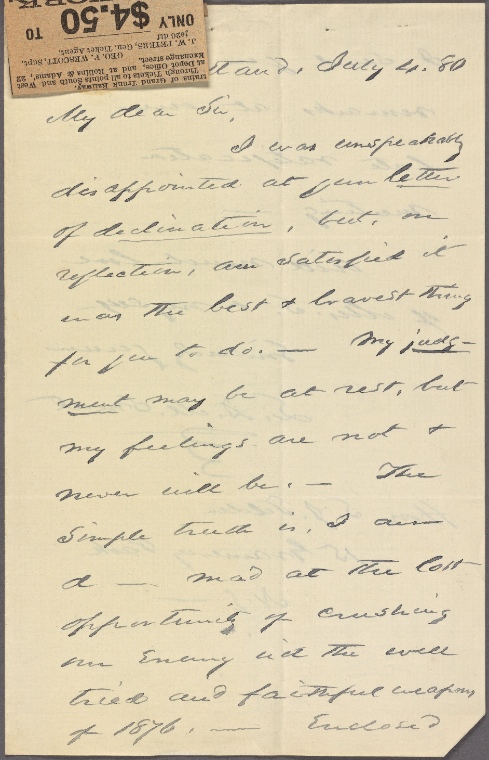 YORK
$4.50
ONLY TO
J. W. PETERS, GEO. V. WESCOTT, Supt.
Gen. Ticket Agent.
Exchange street, and at Rollins & Adams, 22
at Depot Office,
Through Tickets to all points South and West
trains of Grand Trunk Railway.
July 4. 80
My dear Sir,
I was unspeakably
disappointed at your letter
of declination, but, on
reflection, am satisfied it
was the best & bravest thing
for you to do. — My judg-
ment may be at rest, but
my feelings are not &
never will be. — The
simple truth is, I am
d — mad at the lost
opportunity of crushing
our Enemy with the well
tried and faithful weapons
of 1876. — Enclosed